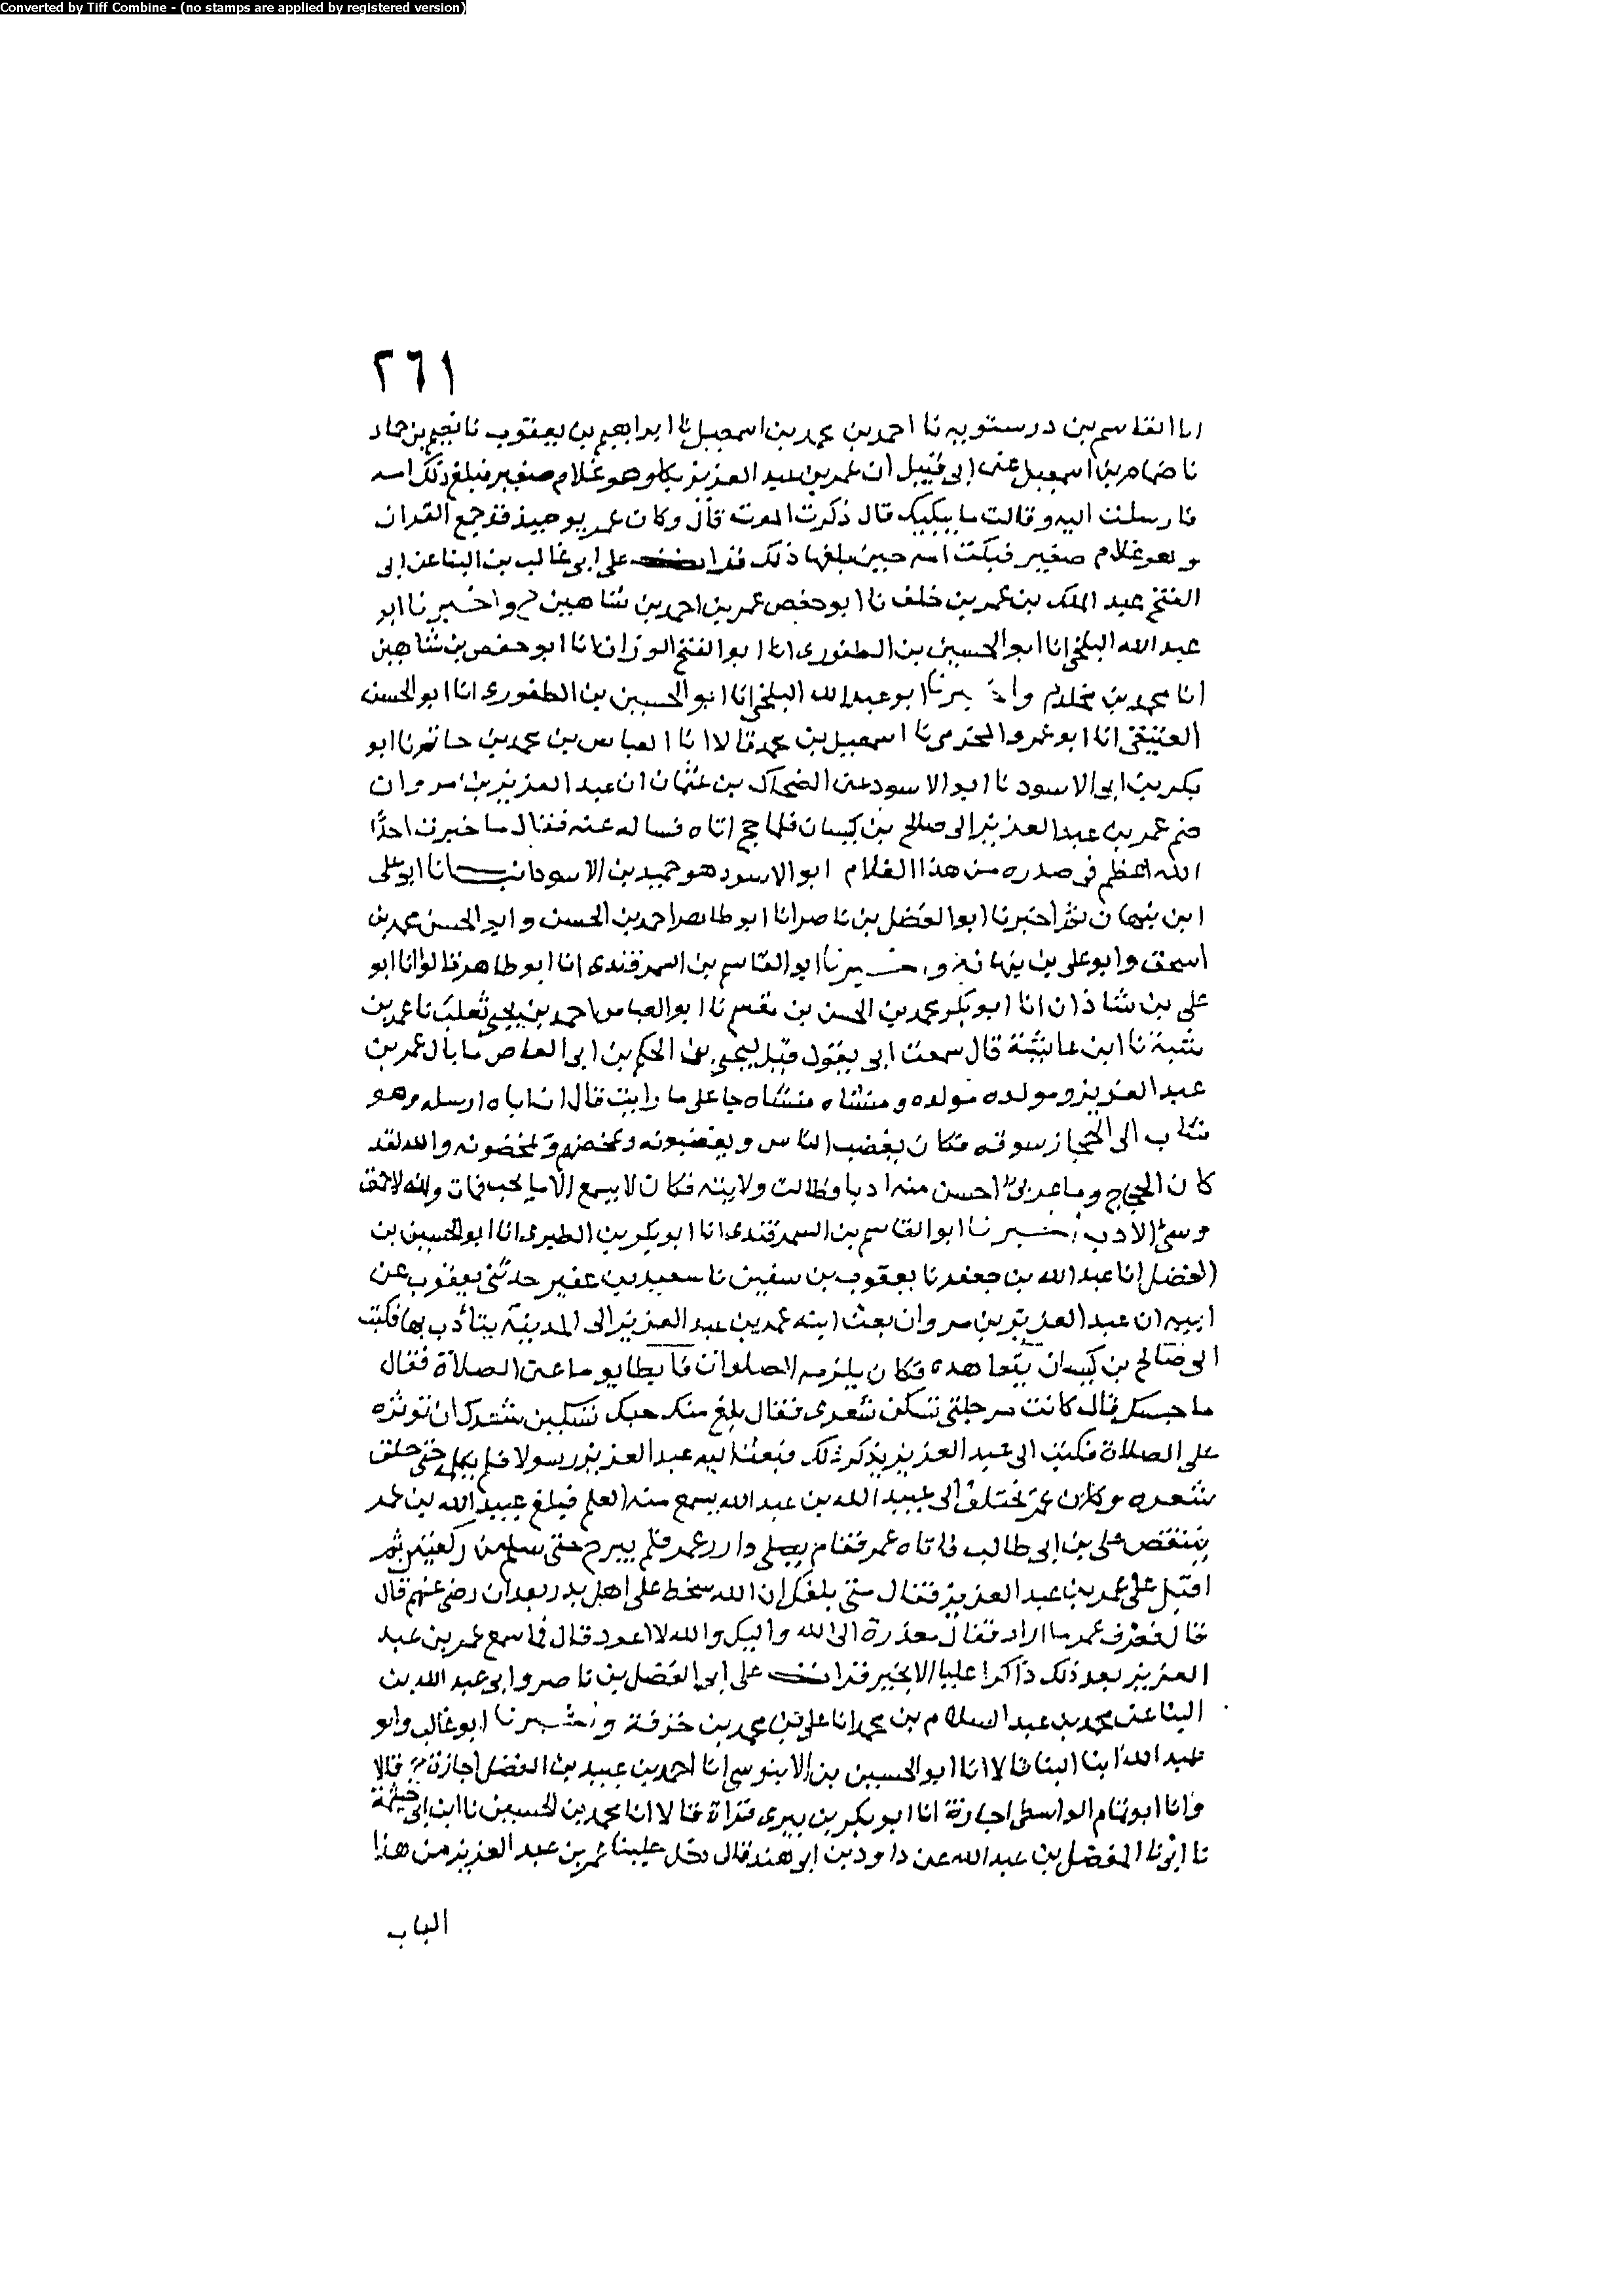 Converted by Tiff Combine - (no stamps are applied by registered version)
٢٦١
انا القاسم بن درستويه نا احمد بن محمد بن اسمعيل نا ابراهيم بن يعقوب نا نعيم بن حماد
نا ضمام بن اسمعيل عن ابى قبيل ان عمر بن عبد العزيز بكا وهو غلام صغير فبلغ ذلك امه
فارسلت اليه وقالت ما يبكيك قال ذكرت الموت قال وكان عمر يوميذ قد جمع القران
وهو غلام صغير فبكت امه حين بلغها ذلك قرات على ابى غالب بن البنا عن ابى
الفتح عبد الملك بن عمر بن خلف نا ابو حفص عمر بن احمد بن شاهين ح واخبرنا ابو
عبد الله البلخى انا ابو الحسين بن الطفورى انا ابو الفتح الوزان انا ابو حفص بن شاهين
انا محمد بن مخلد ح واخبرنا ابو عبد الله البلخى انا ابو الحسين بن الطفورى انا ابو الحسن
العتيقى انا ابو عمرو المخرمى نا اسمعيل بن محمد قالا انا العباس بن محمد بن حاتم نا ابو
بكر بن ابى الاسود نا ابو الاسود عن الضحاك بن عثمان ان عبد العزيز بن مروان
ضم عمر بن عبد العزيز الى صالح بن كيسان فلما حج اتاه فساله عنه فقال ما خبرت احدًا
الله اعظم فى صدره من هذا الغلام ابو الاسود هو حميد بن الاسود انبانا ابو على
ابن نبهان ثم اخبرنا ابو الفضل بن ناصر انا ابو طاهر احمد بن الحسن وابو الحسن محمد بن
اسحق وابو على بن نبهان ح واخبرنا ابو القاسم بن السمرقندى انا ابو طاهر قالوا انا ابو
على بن شاذان انا ابو بكر محمد بن الحسن بن مقسم نا ابو العباس احمد بن يحيى ثعلب نا عمر بن
شبة نا ابن عائشة قال سمعت ابى يقول قيل ليحيى بن الحكم بن ابى العاص ما بال عمر بن
عبد العزيز ومولده مولده ومنشاه منشاه جا على ما رايت قال ان اباه ارسله وهو
شاب الى الحجاز سوقه فكان يغضب الناس ويغضبونه ويمخضهم ويمخضونه والله لقد
كان الحجاج وما عربى احسن منه ادبا فطالت ولايته فكان لا يسمع الا ما يحب فمات وانه لاحمق
وسئ الادب اخبرنا ابو القاسم بن السمرقندى انا ابو بكر بن الطبرى انا ابو الحسين بن
الفضل انا عبد الله بن جعفر نا يعقوب بن سفين نا سعيد بن عفير حدثنى يعقوب عن
ابيه ان عبد العزيز بن مروان بعث ابنه عمر بن عبد العزيز الى المدينة يتادب بها فكتب
الى صالح بن كيسان يتعاهده فكان يلزمه الصلوات فابطا يوما عن الصلاة فقال
ما حبسك قال كانت مرجلتى تسكن شعرى فقال بلغ منك حبك تسكين شعرك ان توثره
على الصلاة فكتب الى عبد العزيز يذكر ذلك فبعث اليه عبد العزيز رسولا فلم يكلمه حتى حلق
شعره وكان عمر يختلف الى عبيد الله بن عبد الله يسمع منه العلم فبلغ عبيد الله ان عمر
ينتقص على بن ابى طالب فاتاه عمر فقام يصلى وارز عمر فلم يبرح حتى سلم من ركعتين ثم
اقبل على عمر بن عبد العزيز فقال متى بلغك ان الله سخط على اهل بدر بعد ان رضى عنهم قال
قال فعرف عمر ما اراد فقال معذرة الى الله واليك والله لا اعود قال فما سمع عمر بن عبد
العزيز بعد ذلك ذاكرا عليا الا بخير قرات على ابى الفضل بن ناصر وابى عبد الله بن
البنا عن محمد بن عبد السلام بن محمد انا على بن محمد بن خزفة واخبرنا ابو غالب وابو
عبد الله ابنا البنا قالا انا ابو الحسين بن الابنوسى انا احمد بن عبيد بن الفضل اجازة ح قالا
وانا ابو تمام الواسطى اجازة انا ابو بكر بن بيرى قراة قالا انا محمد بن الحسين نا ابن ابى خيثمة
نا ابى نا المفضل بن عبد الله عن داود بن ابى هند قال دخل علينا عمر بن عبد العزيز من هذا
الباب